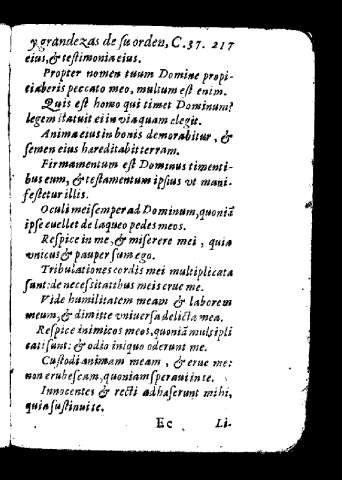 y grandezas de su orden, C.37. 217
eius, & testimonia eius.
Propter nomen tuum Domine propi-
ciaberis peccato meo, multum est enim.
Quis est homo qui timet Dominum?
legem statuit ei in via quam elegit.
Anima eius in bonis demorabitur, &
semen eius hereditabit terram.
Firmamentum est Dominus timenti-
bus eum, & testamentum ipsius vt mani-
festetur illis.
Oculi mei semper ad Dominum, quoniã
ipse euellet de laqueo pedes meos.
Respice in me, & miserere mei, quia
vnicus & pauper sum ego.
Tribulationes cordis mei multiplicata
sunt: de necessitatibus meis erue me.
Vide humilitatem meam & laborem
meum, & dimitte vniuersa delicta mea.
Respice inimicos meos, quoniã multipli
cati sunt: & odio iniquo oderunt me.
Custodi animam meam, & erue me:
non erubescam, quoniam speraui in te.
Innocentes & recti adhaserunt mihi,
quia sustinui te.
Ee Li-